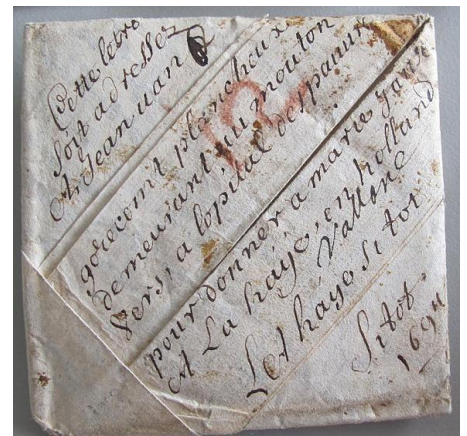 Cette letre
soit adressez
A Jean van
gorecom plancheur
demeurant au mouton
vers, a lopital des pauure
pour donner a marie
A La haye, en holland
Vallone
Let haye si tot
Si tot